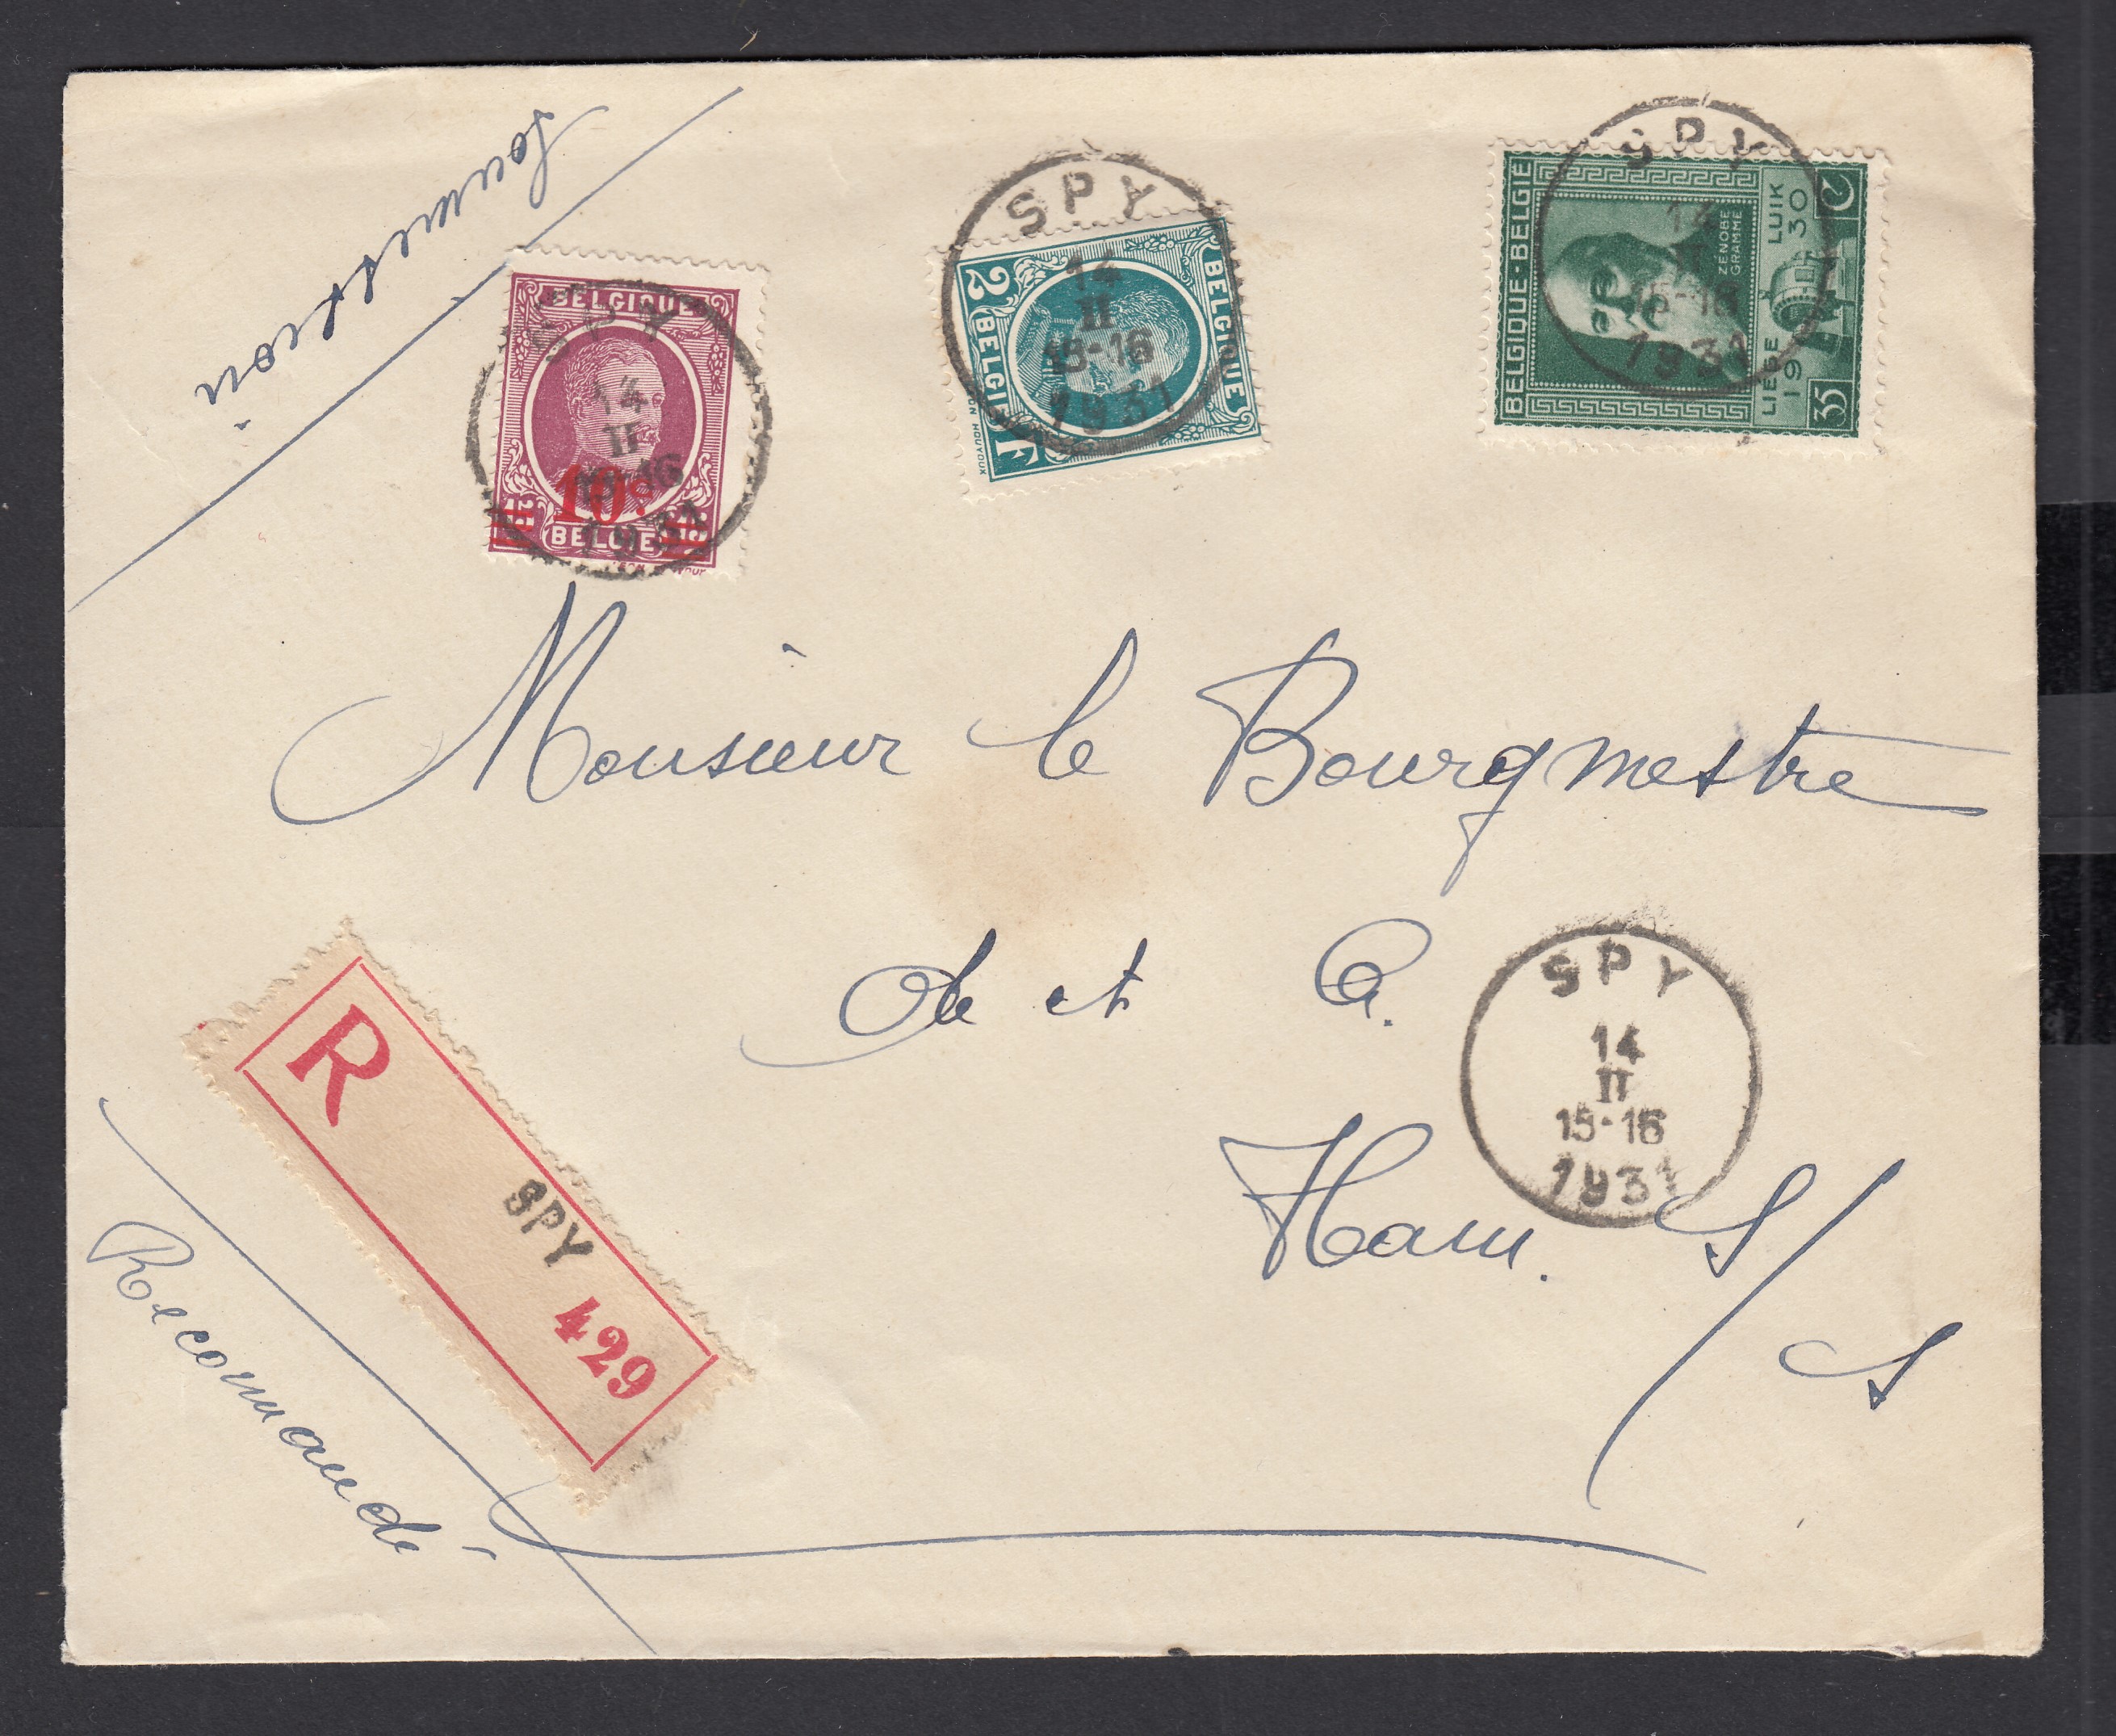 Soumission
BELGIQUE
SPY
14
II
15-16
1931
10c
BELGIË
SPY
14
II
15-16
1931
BELGIQUE
2 BELGIË F
SPY
14
II
15-16
1931
BELGIQUE·BELGIË
ZENOBE
GRAMME
LIEGE LUIK
1930
35 C
Monsieur le Bourgmestre
de et à
Ham. S/S
SPY
14
II
15-16
1931
R
SPY
429
Recommandé